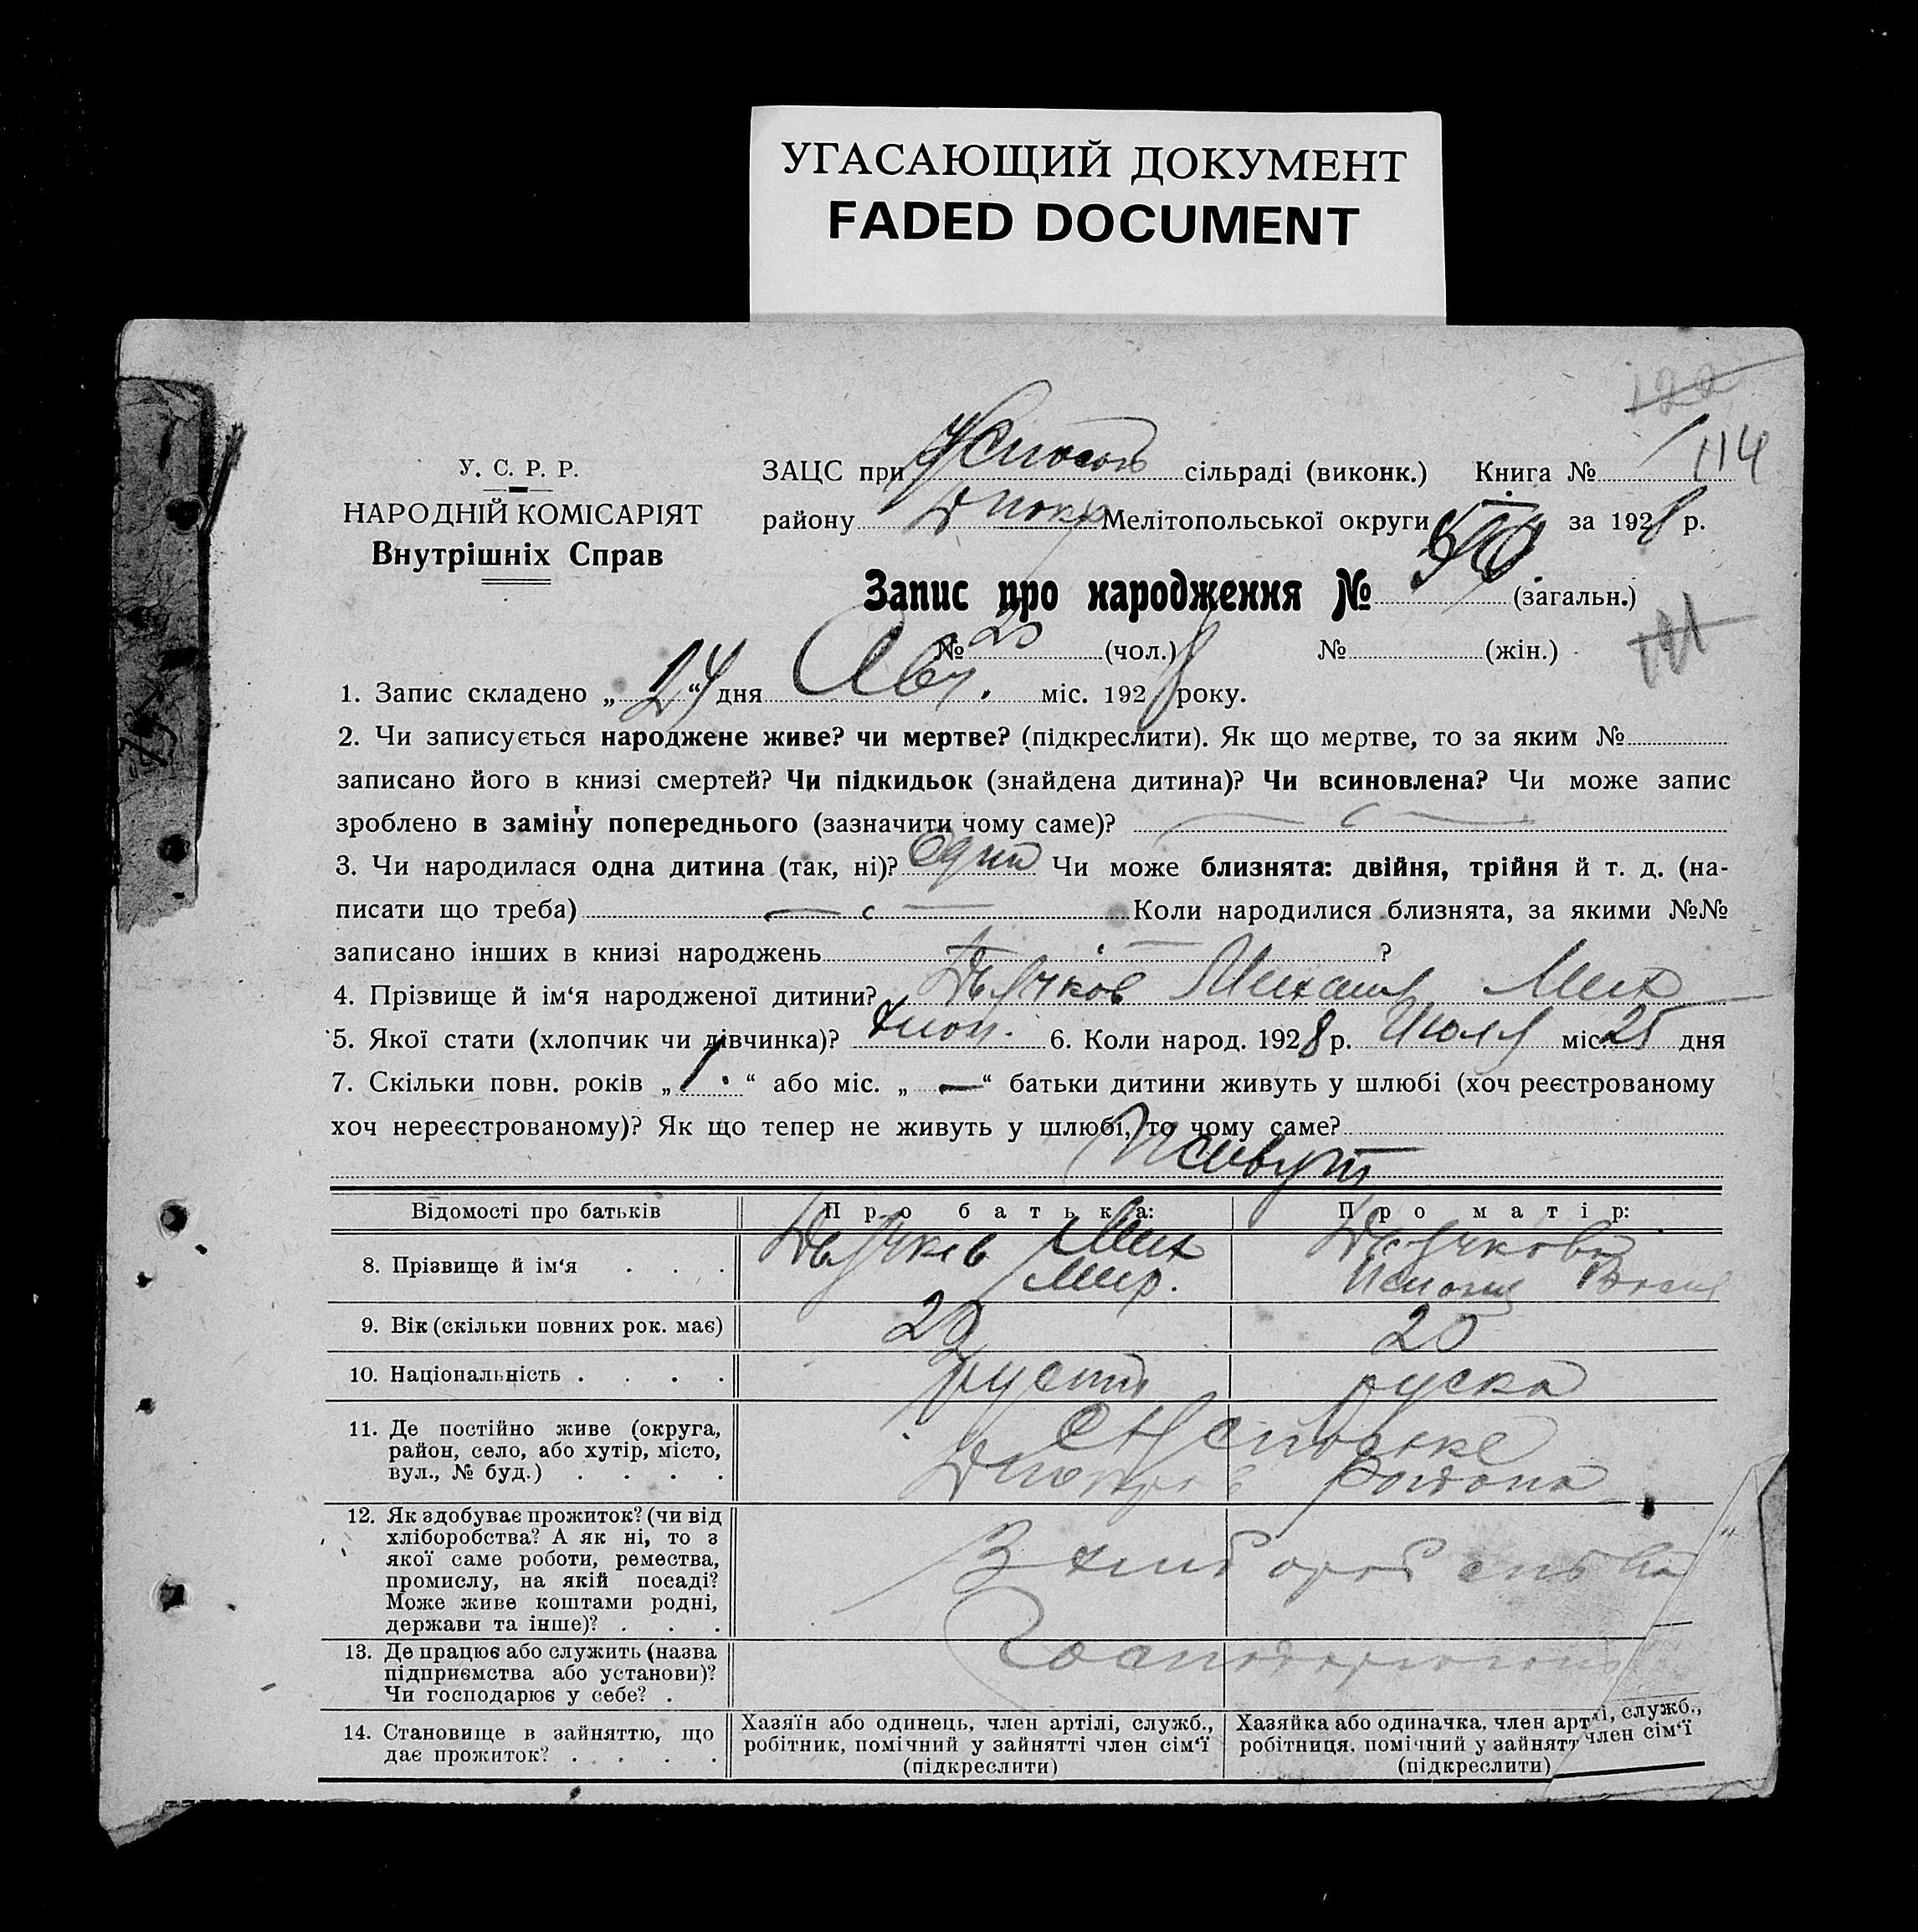 УГАСАЮЩИЙ ДОКУМЕНТ
FADED DOCUMENT
122
114
У. С. Р. Р.
НАРОДНІЙ КОМІСАРІЯТ
Внутрішніх Справ
ЗАЦС при сільраді (виконк.) Книга №
району Мелітопольської округи за 1928 р.
Запис про народження № (загальн.)
№ (чол.) № (жін.)
1. Запис складено „24“ дня Авг. міс. 1928 року.
2. Чи записується народжене живе? чи мертве? (підкреслити). Як що мертве, то за яким №
записано його в книзі смертей? Чи підкидьок (знайдена дитина)? Чи всиновлена? Чи може запис
зроблено в заміну попереднього (зазначити чому саме)?
3. Чи народилася одна дитина (так, ні)? Один Чи може близнята: двійня, трійня й т. д. (на-
писати що треба) Коли народилися близнята, за якими №№
записано інших в книзі народжень ?
4. Прізвище й ім‘я народженої дитини? Дьячков Михаил Мих
5. Якої стати (хлопчик чи дівчинка)? хлоп. 6. Коли народ. 1928 р. Июля міс. 25 дня
7. Скільки повн. років „1.“ або міс. „—“ батьки дитини живуть у шлюбі (хоч реєстрованому
хоч нереєстрованому)? Як що тепер не живуть у шлюбі, то чому саме?
живут
Відомості про батьків Про батька: Про матір:
8. Прізвище й ім‘я . . . Дьячков Мих Дьячкова
Мир.
9. Вік (скільки повних рок. має) 20 20
10. Національність . . . . руска
11. Де постійно живе (округа,
район, село, або хутір, місто,
вул., № буд.) . . . . района
12. Як здобуває прожиток? (чи від
хліборобства? А як ні, то з
якої саме роботи, ремества,
промислу, на якій посаді?
Може живе коштами родні,
держави та інше)? . . .
З хліборобства
13. Де працює або служить (назва
підприємства або установи)?
Чи господарює у себе? .
14. Становище в зайняттю, що
дає прожиток? . . . .
Хазяїн або одинець, член артілі, служб.,
робітник, помічний у зайнятті член сім‘ї
(підкреслити)
Хазяйка або одиначка, член артілі, служб.,
робітниця, помічний у зайнятт член сім‘ї
(підкреслити)